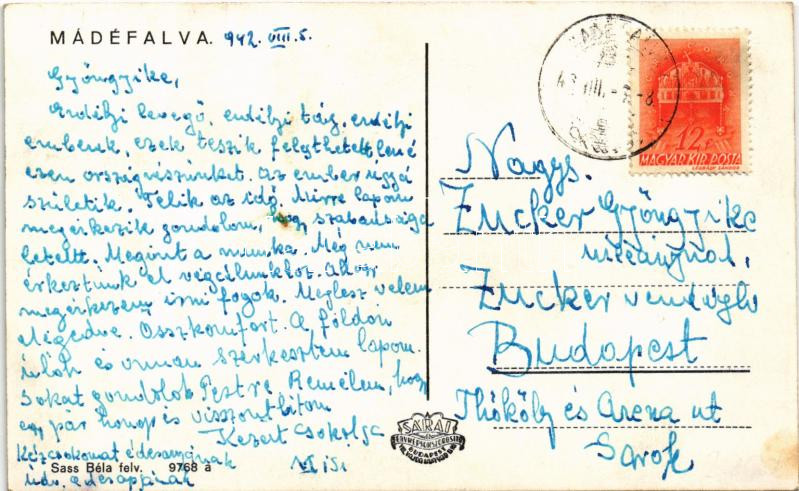 MÁDÉFALVA. 942. VIII. 5.
Gyöngyike,
Erdélyi levegő, erdélyi táj, erdélyi
emberek, ezek teszik felejthetetlenné
ezen országrészünket. Az ember ujjá
születik. Telik az idő. Mirre lapom
megérkezik gondolom, hogy szabadsága
letelt. Megint a munka. Még nem
érkeztünk el végcélunkhoz. Ahogy
megérkezem írni fogok. Meglesz velem
elégedve. Összkomfort. A földön
ülök és onnan szerkesztem lapom.
Sokat gondolok Pestre. Remélem, hogy
egy pár hónap és viszontlátom
Kezeit csókolja
Kézcsókomat édesanyjának
üdv. édesapjának
Sass Béla felv. 9768 a
SARAI
FÉNYKÉPSOKSZOROSÍTÓ
BUDAPEST
12 f
MAGYAR KIR. POSTA
LÉGRÁDY SÁNDOR
Nagys.
Zucker Gyöngyike
urleánynak,
Zucker vendéglő
Budapest
Thököly és Arena ut
Sarok